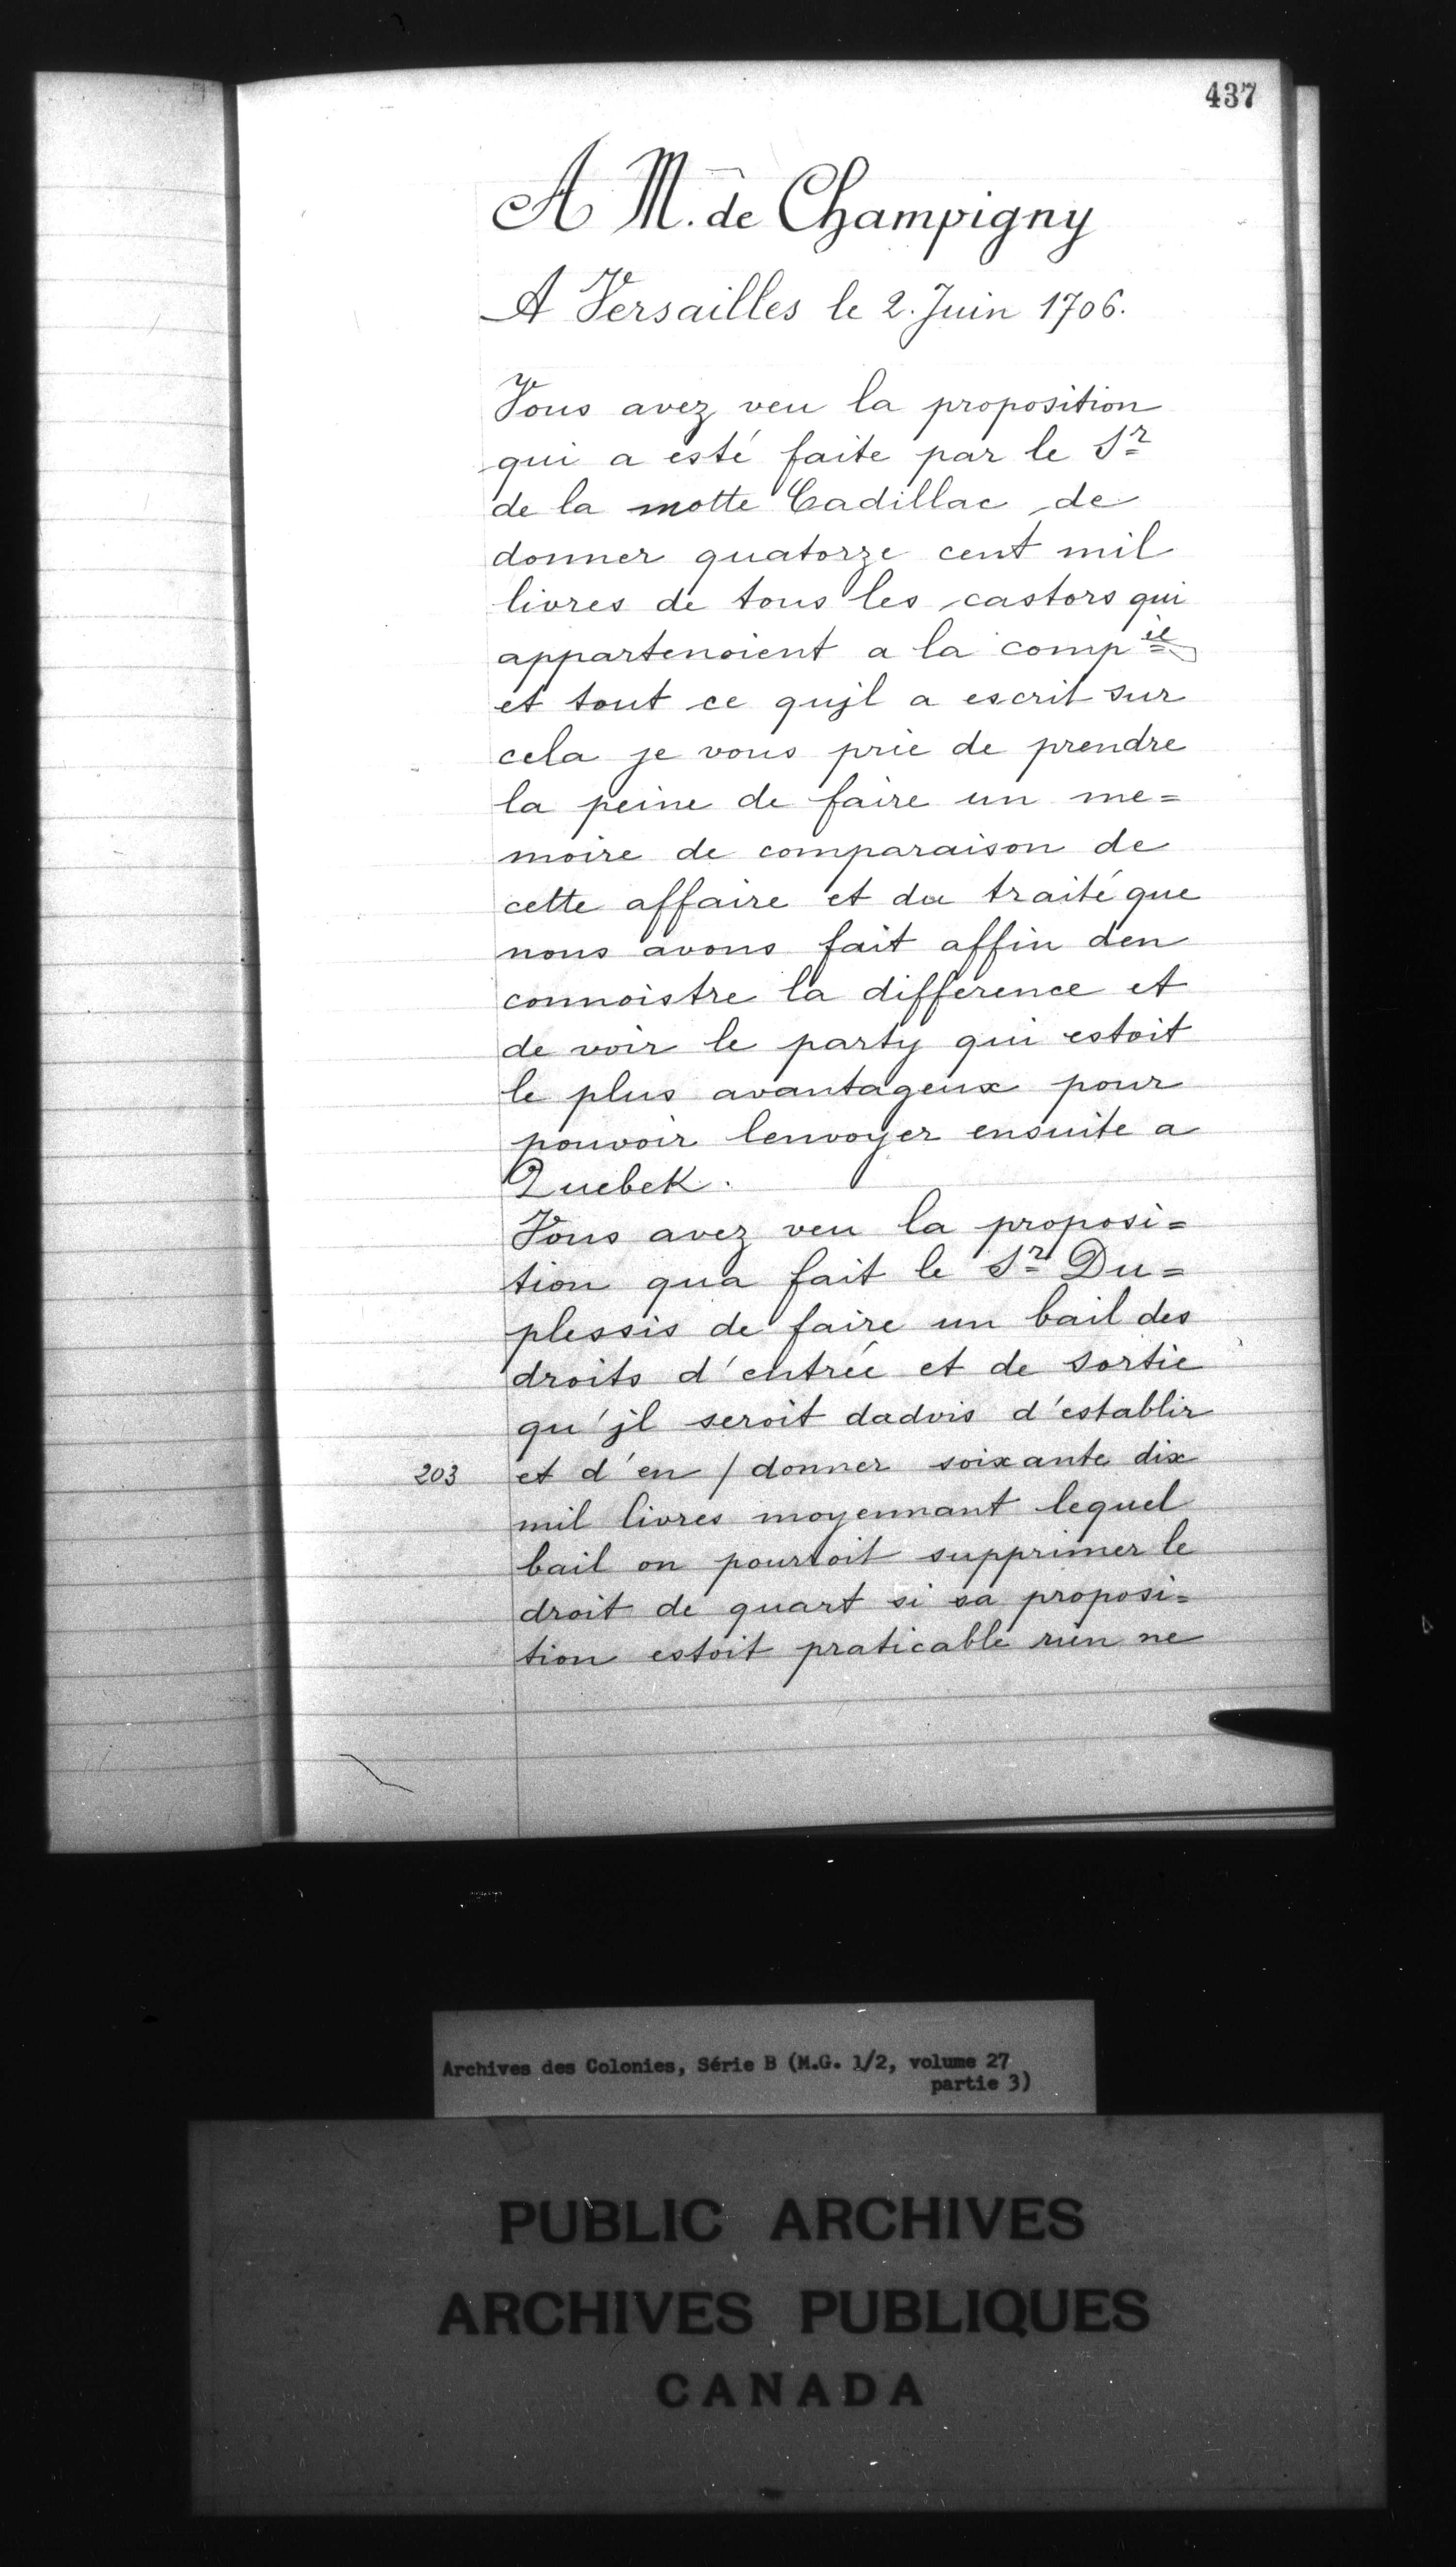 437
A M. de Champigny
A Versailles le 2. Juin 1706.
Vous avez veu la proposition
qui a esté faite par le Sr
de la motte Cadillac de
donner quatorze cent mil
livres de tous les castors qui
appartenoient a la compie
et tout ce qujl a escrit sur
cela je vous prie de prendre
la peine de faire un me=
moire de comparaison de
cette affaire et du traité que
nous avons fait affin den
connoistre la difference et
de voir le party qui estoit
le plus avantageux pour
pouvoir lenvoyer ensuite a
Quebek.
Vous avez veu la proposi=
tion qua fait le Sr Du=
plessis de faire un bail des
droits d'entrée et de sortie
qu'jl seroit dadvis d'establir
203 et d'en / donner soixante dix
mil livres moyennant lequel
bail on pourroit supprimer le
droit de quart si sa proposi=
tion estoit praticable rien ne
Archives des Colonies, Série B (M.G. 1/2, volume 27
partie 3)
PUBLIC ARCHIVES
ARCHIVES PUBLIQUES
CANADA